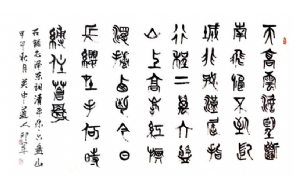 天高雲淡望斷
南飛雁不到長
城非好漢屈指
行程二萬六盤
山上高峰紅旗
漫卷西風今日
長纓在手何時
縛住蒼龍
右錄毛澤東詞清平樂六盤山
甲午秋月